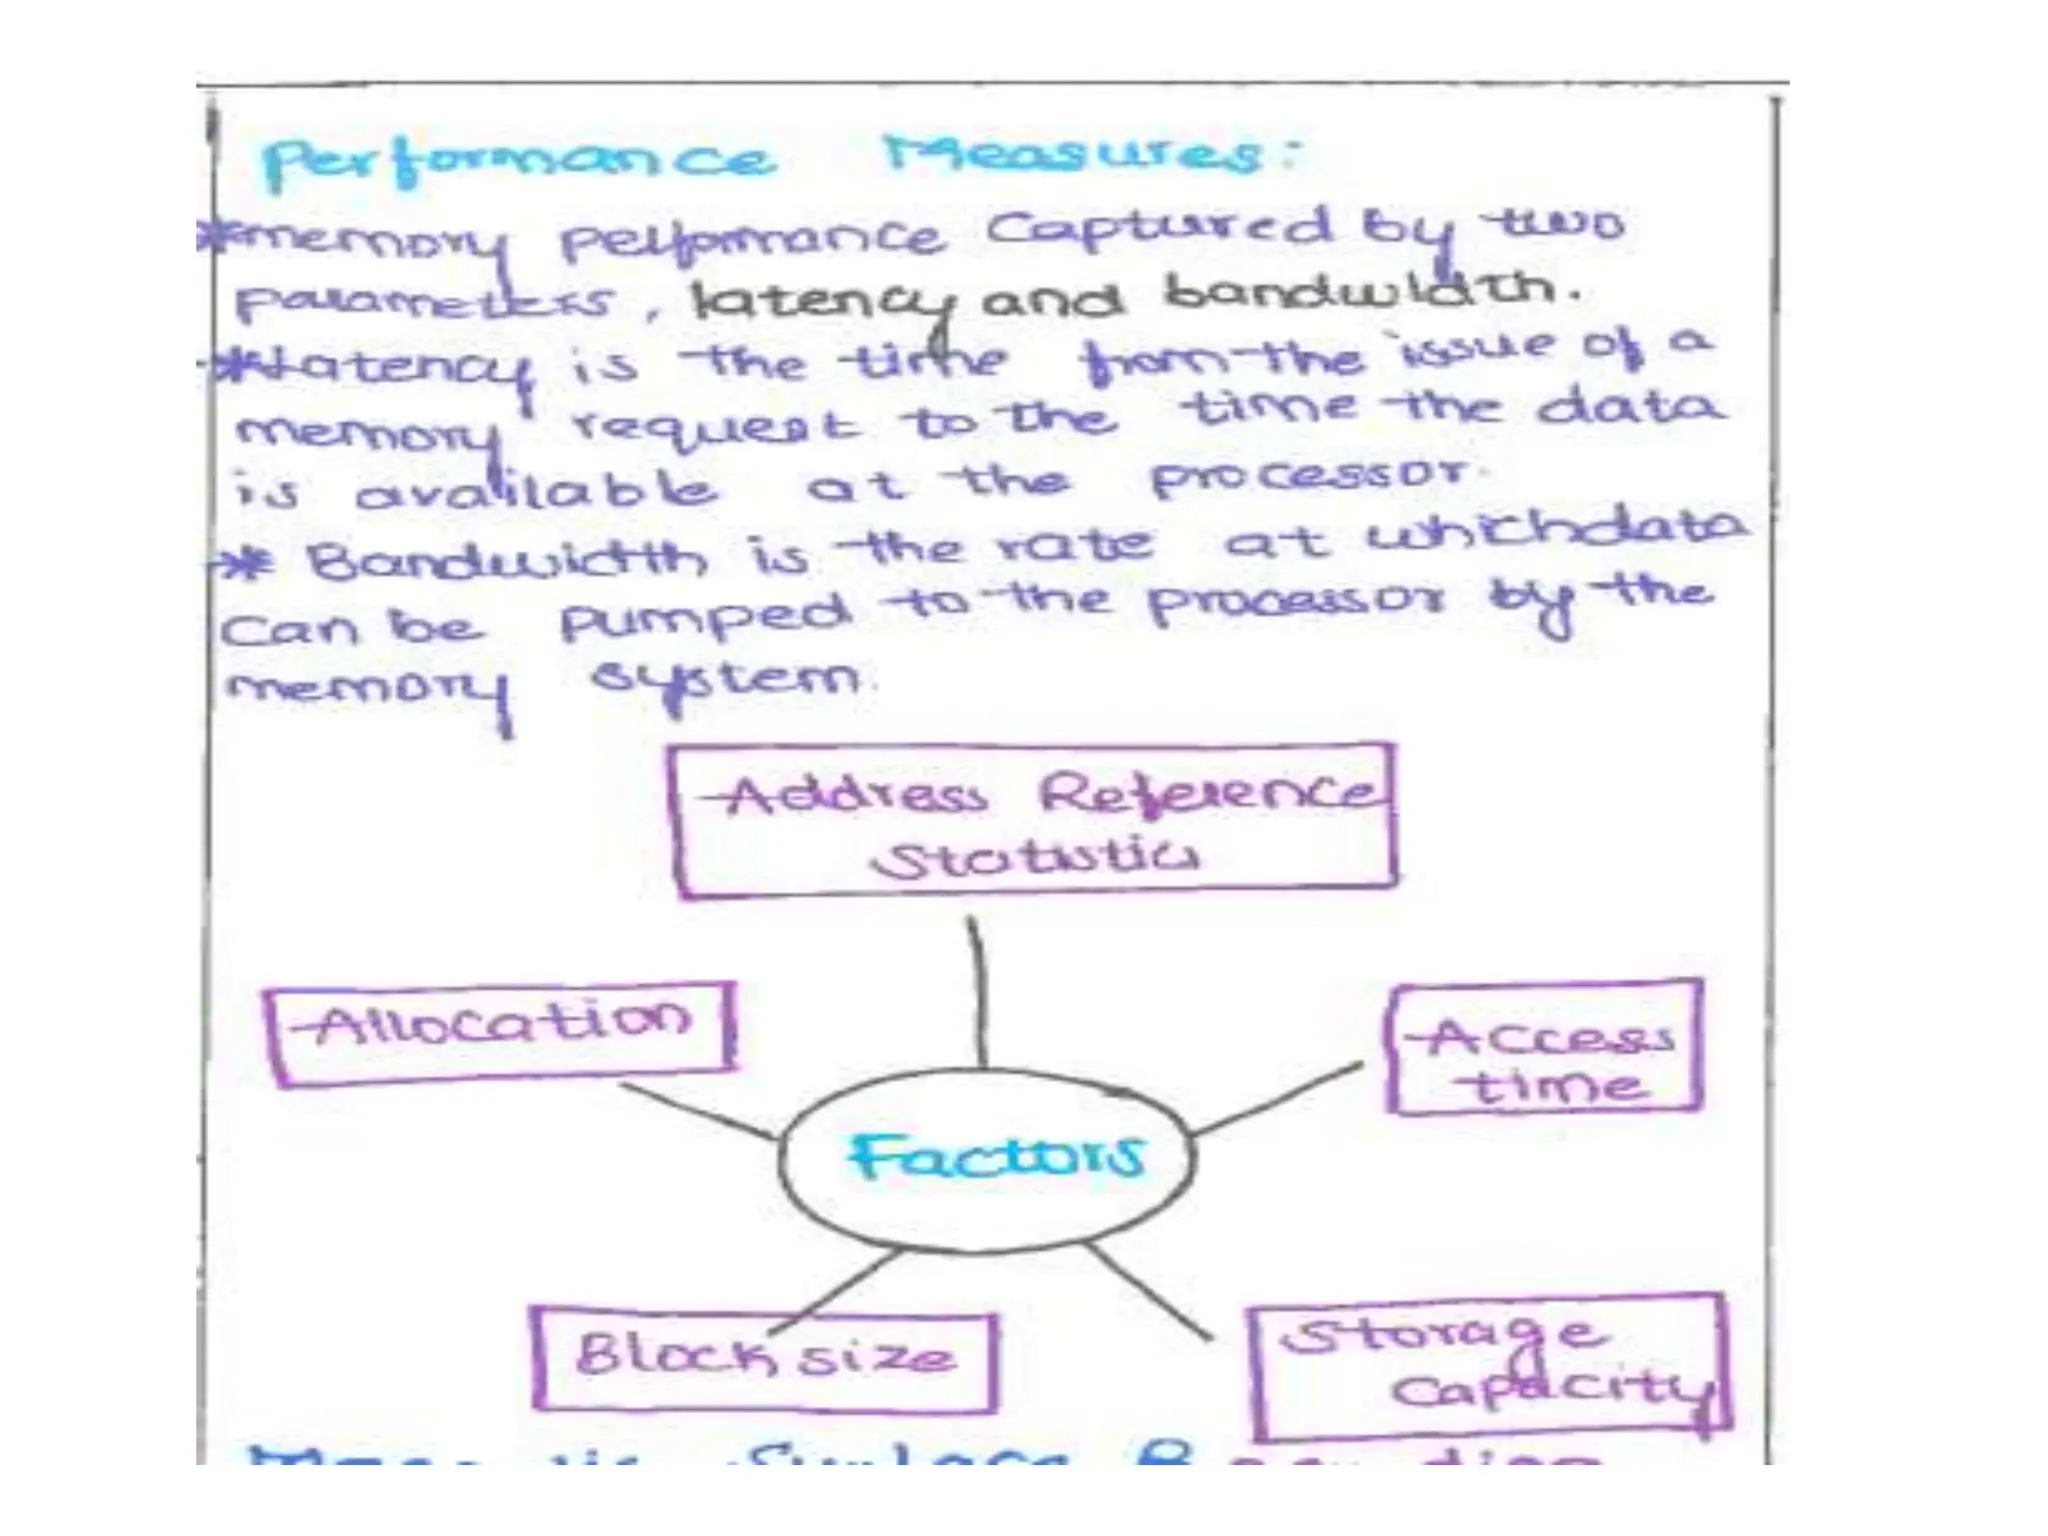 Performance Measures:
*memory performance captured by two
parameters, latency and bandwidth.
*latency is the time from the issue of a
memory request to the time the data
is available at the processor.
* Bandwidth is the rate at which data
can be pumped to the processor by the
memory system.
Address Reference
Statistics
Allocation
Access
time
Factors
Block size
Storage
Capacity